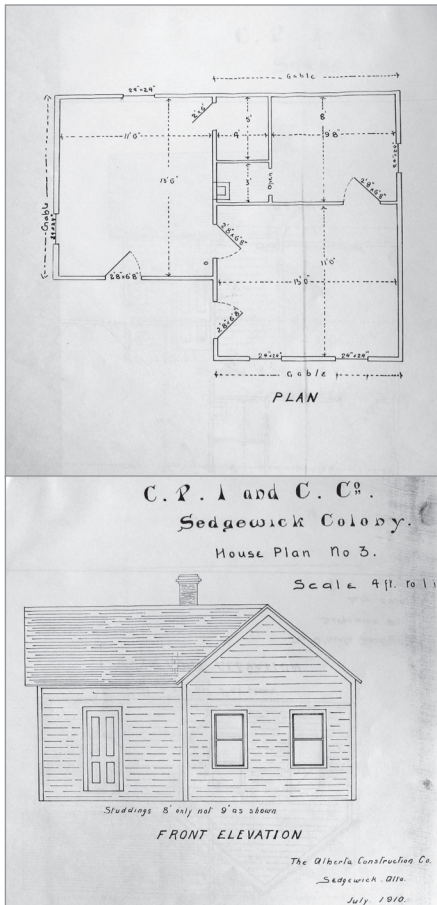 Gable
24"×24"
2'×6'
11'0"
13'6"
5'
4'
8'
9'8"
Gable
3'
Open
2'8"×6'8"
2'8"×6'8"
2'8"×6'8"
11'0"
13'0"
2'8"×6'8"
24"×24" 24"×24"
Gable
PLAN
C. P. I and C. Co.
Sedgewick Colony.
House Plan No 3.
Scale 4 ft. to 1 i
Studdings 8' only not 9' as shown
FRONT ELEVATION
The Alberta Construction Co.
Sedgewick Alta.
July 1910.